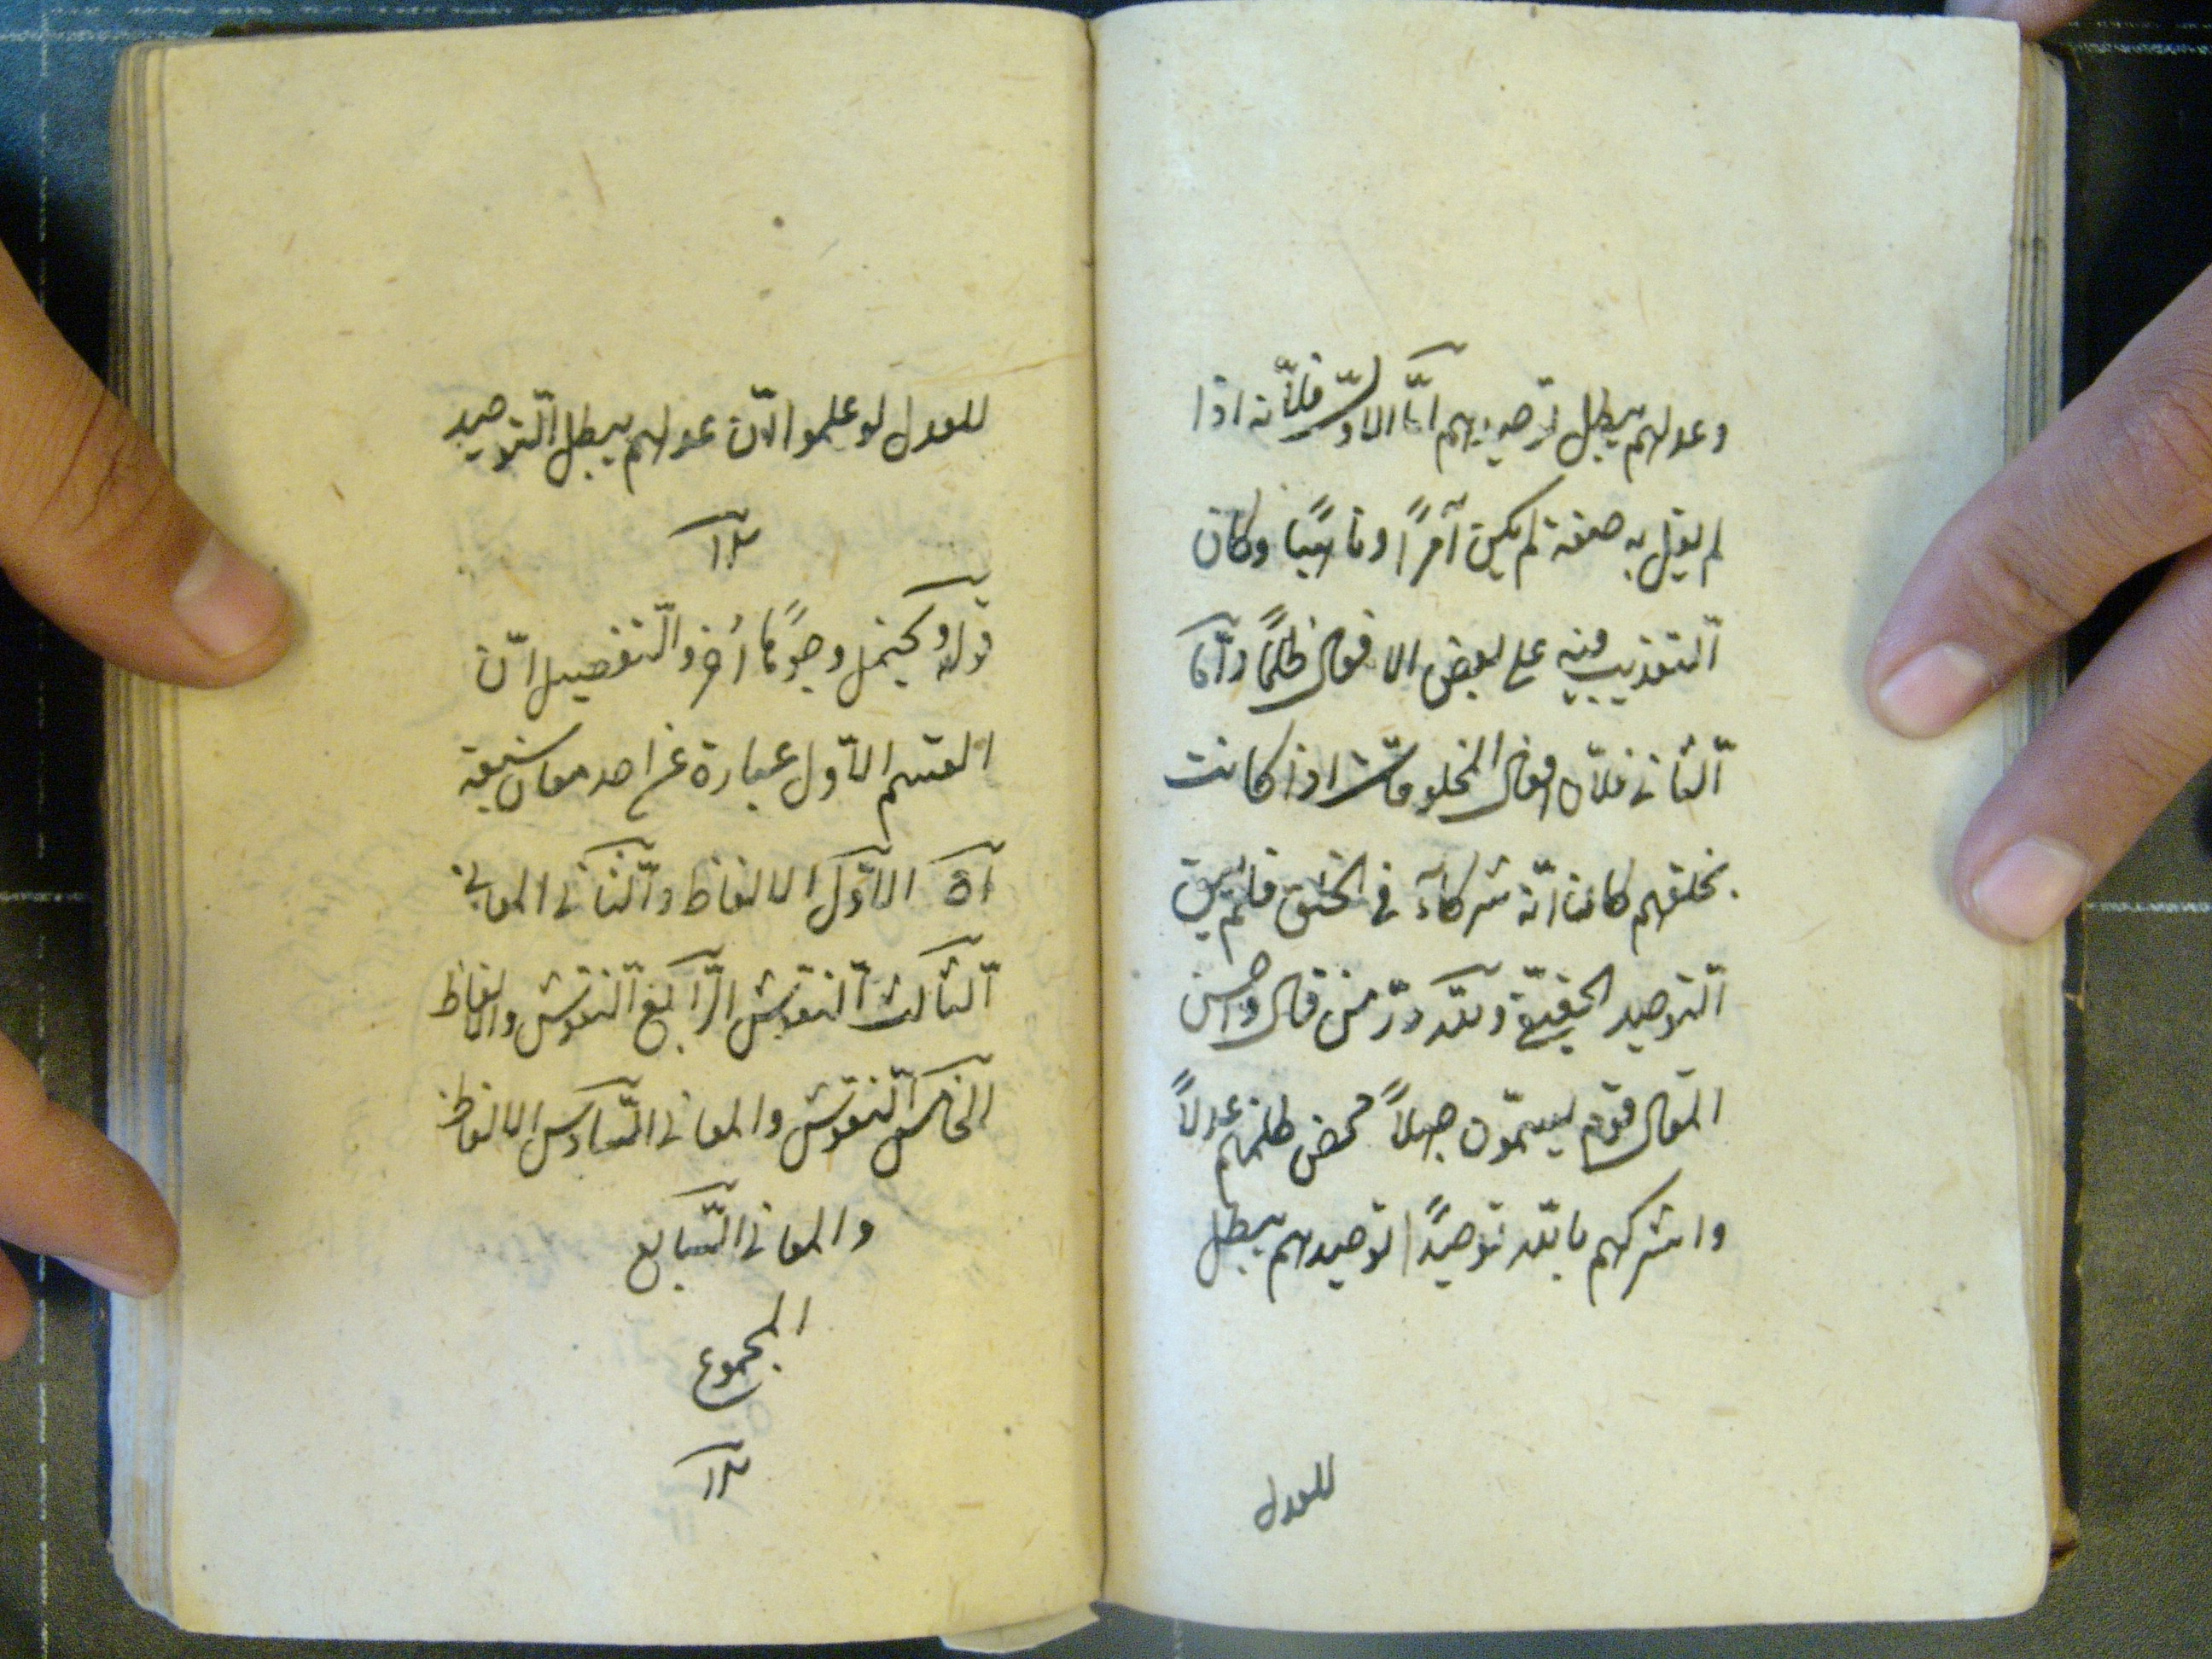 وعدلهم يبطل توحيدهم امّا الاوّل فلأنّه اذا
لم يقل به صفة لم يكن آمرًا وناهيًا وكان
التعذيب منه على بعض الافعال ظلمًا وامّا
الثانى فلانّ افعال المخلوقات اذا كانت
بخلقهم كانت له شركاء فى الخلق فلم يبق
التوحيد الحقيقىّ ولله درّ من قال واحسن
المقال قوم يسمّون جهلاً محض ظلمهم عدلاً
واشركهم بالله توحيدًا توحيدهم يبطل
للعدل
للعدل لو علموا الآن عدلهم يبطل التوحيد
قوله ويحتمل وجوهًا أخر والتفصيل انّ
القسم الأوّل عبارة عن احد معان سبعة
الاوّل الالفاظ والثانى المعانى
الثالث النقوش الرّابع النقوش والالفاظ
الخامس النقوش والمعانى السّادس الالفاظ
والمعانى السّابع
المجموع